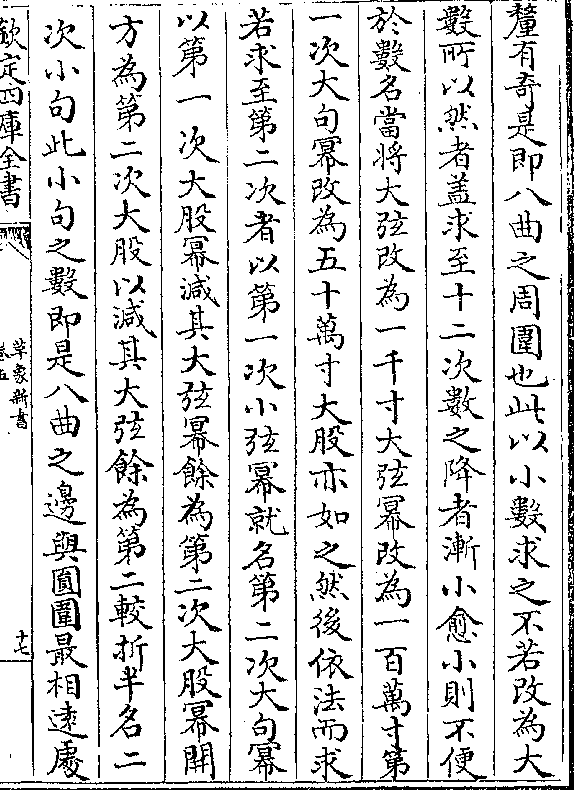 釐有奇是即八曲之周圍也此以小數求之不若改為大
數所以然者盖求至十二次數之降者漸小愈小則不便
於數名當將大弦改為一千寸大弦冪改為一百萬寸第
一次大句冪改為五十萬寸大股亦如之然後依法而求
若求至第二次者以第一次小弦冪就名第二次大句冪
以第一次大股冪減其大弦冪餘為第二次大股冪開
方為第二次大股以減其大弦餘為第二較折半名二
次小句此小句之數即是八曲之邊與圓圍最相逺處
欽定四庫全書
革象新書
卷五
十七